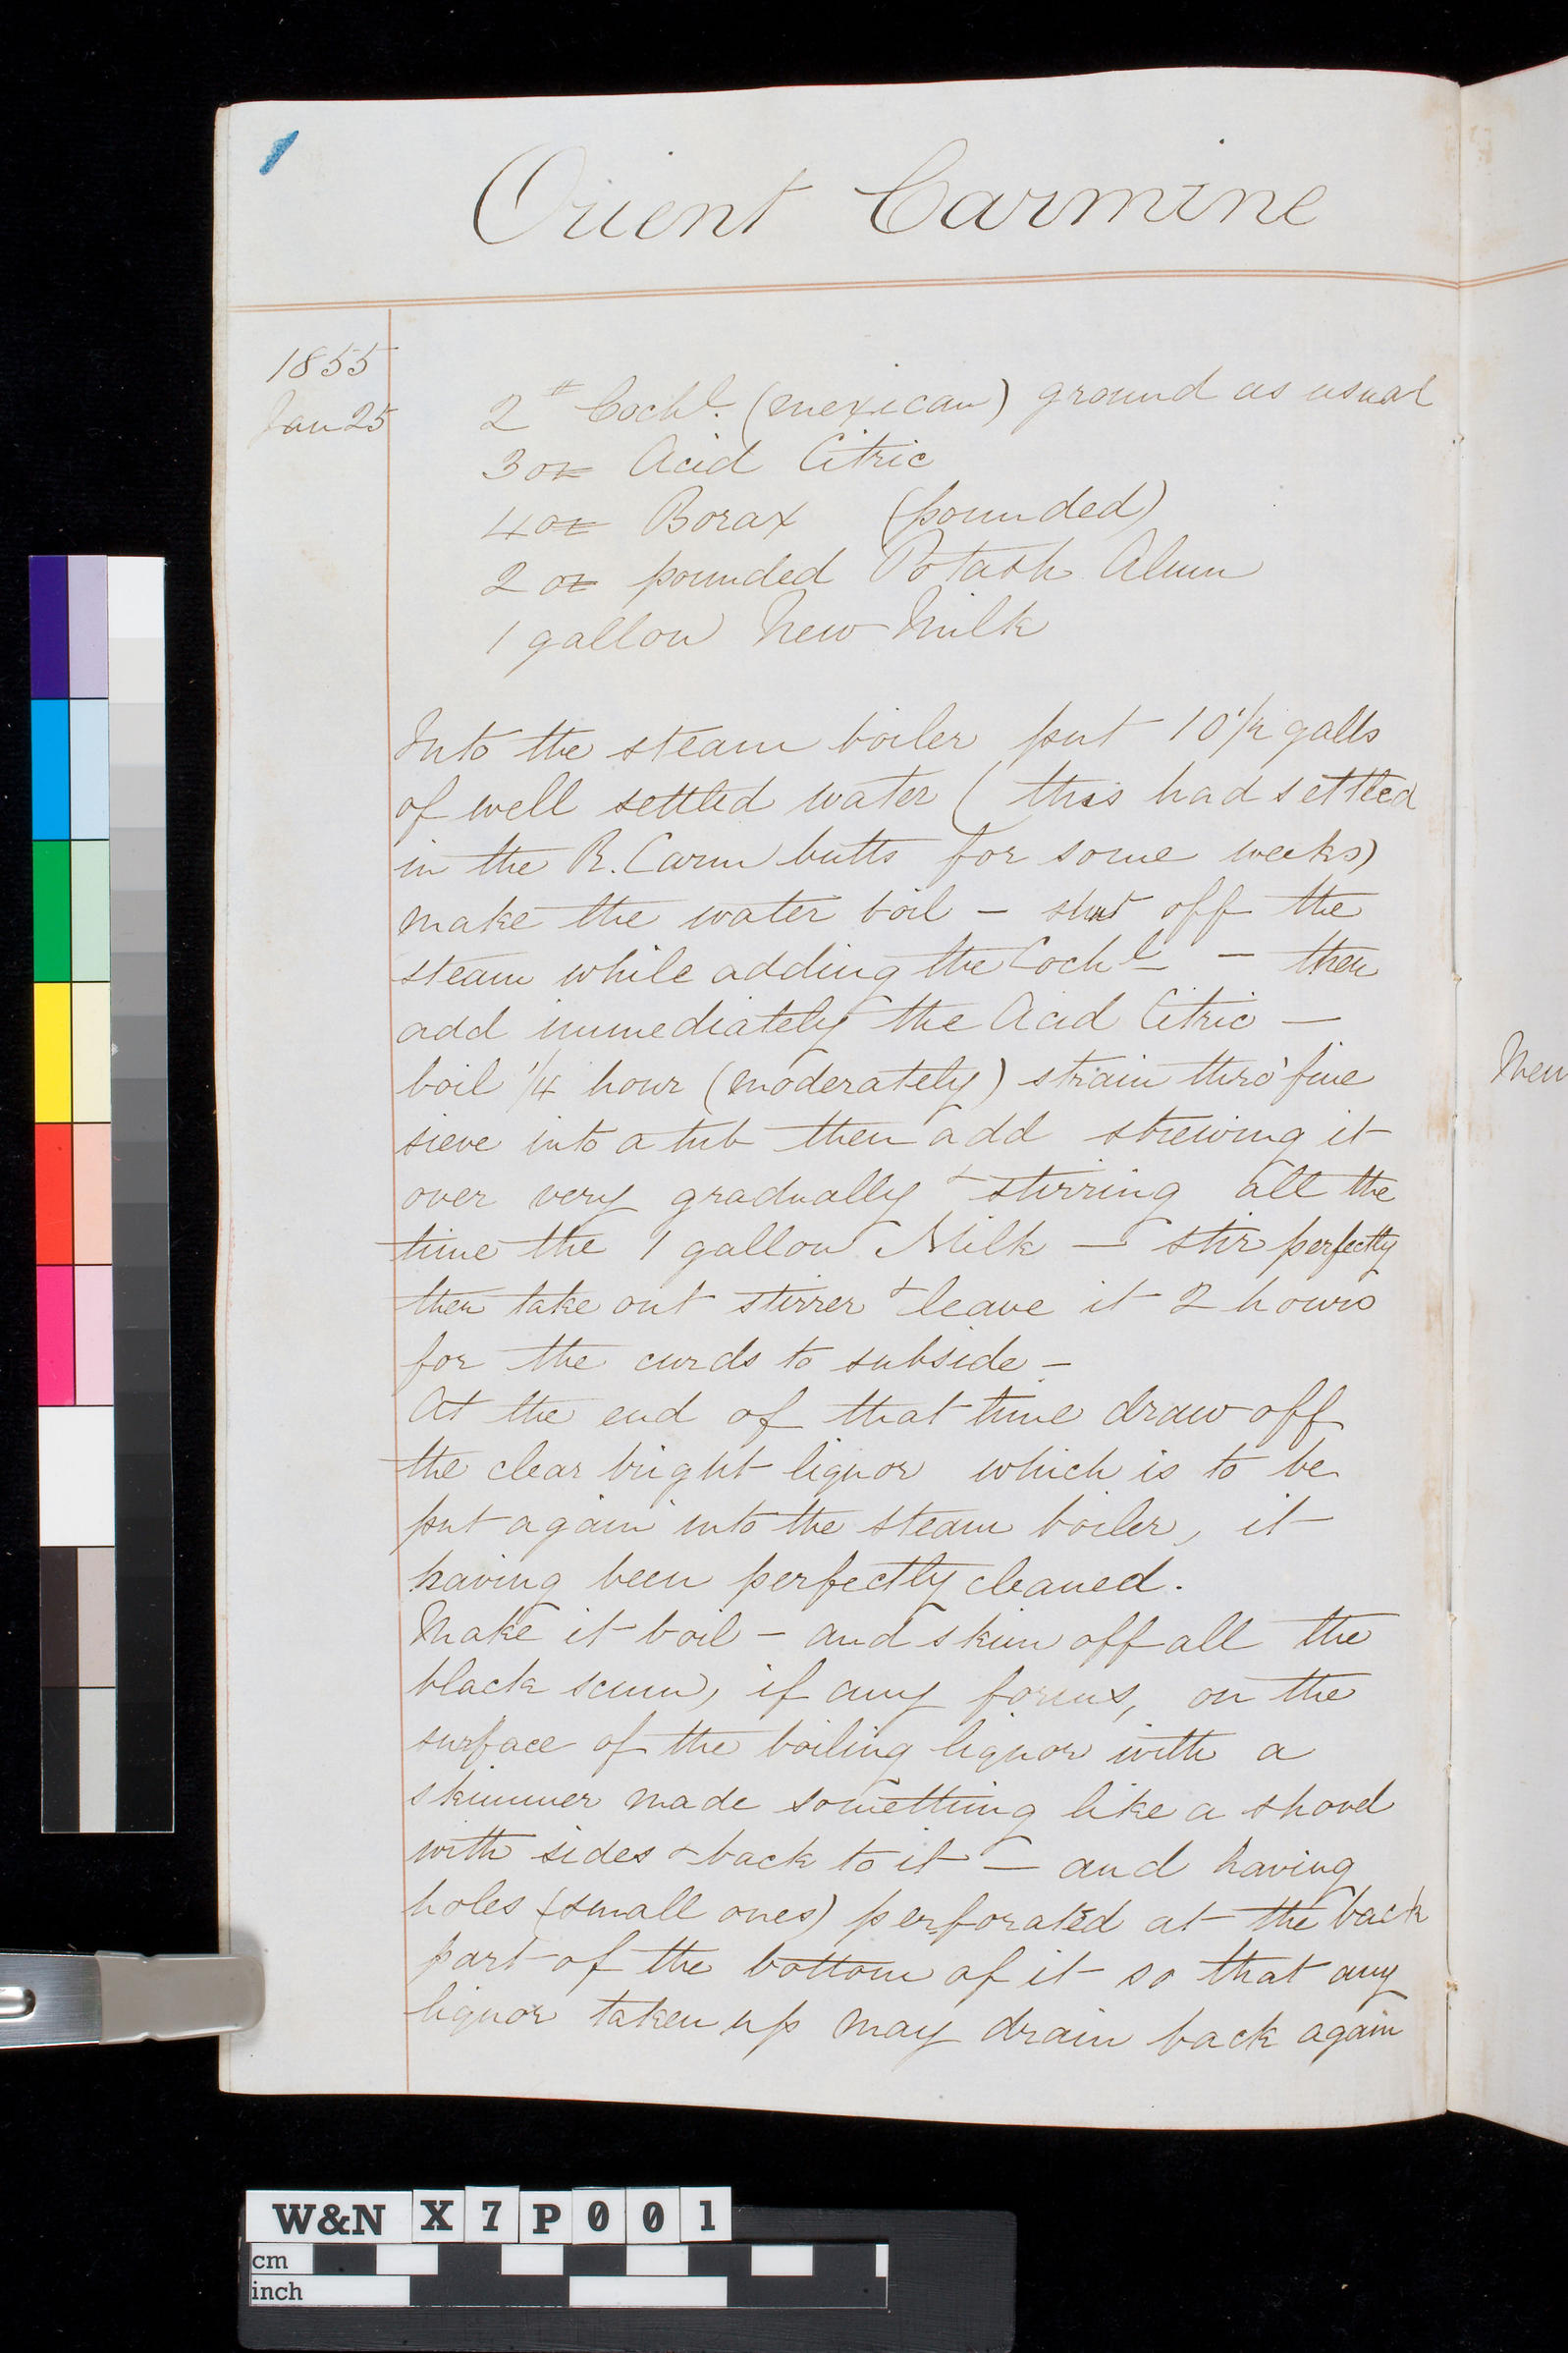 1
Orient Carmine
1855
Jan 25
2 # Cochl. (mexican) ground as usual
3 oz Acid Citric
4 oz Borax (pounded)
2 oz pounded Potash Alum
1 gallon New Milk
Into the steam boiler put 10 1/2 galls
of well settled water (this had settled
in the R. Carm butts for some weeks)
make the water boil - shut off the
steam while adding the Cochl - then
add immediately the Acid Citric —
boil 1/4 hour (moderately) strain thro' fine
sieve into a tub then add strewing it
over very gradually & stirring all the
time the 1 gallon Milk — stir perfectly
then take out stirrer & leave it 2 hours
for the curds to subside -
At the end of that time draw off
the clear bright liquor which is to be
put again into the steam boiler, it
having been perfectly cleaned.
Make it boil - and skim off all the
black scum, if any forms, on the
surface of the boiling liquor with a
skimmer made something like a shovel
with sides & back to it — and having
holes (small ones) perforated at the back
part of the bottom of it so that any
liquor taken up may drain back again
W&N X7P001
cm
inch